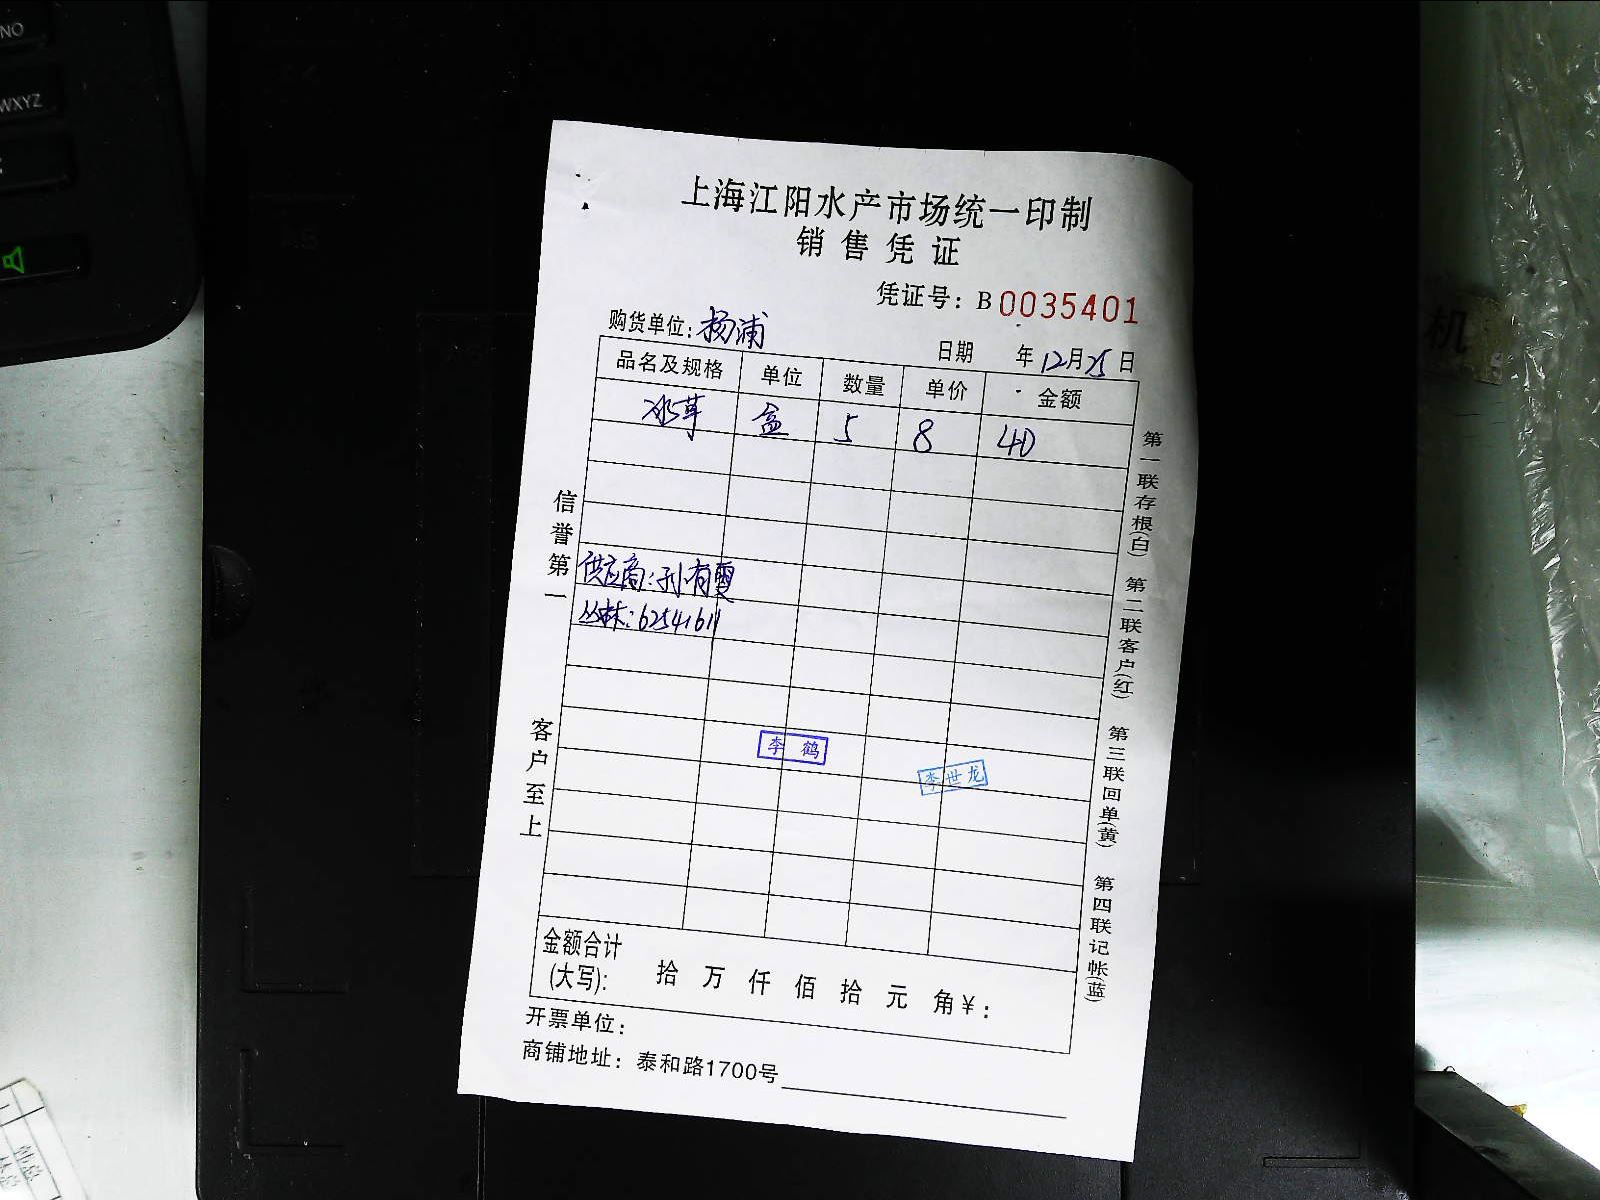 上海江阳水产市场统一印制
销售凭证
凭证号：B0035401
购货单位：杨浦
日期 年12月25日
品名及规格 单位 数量 单价 金额
冰草 盒 5 8 40
供应商：孙有雯
丛林：62541611
李鹤
李世龙
信誉第一
客户至上
第一联存根(白)
第二联客户(红)
第三联回单(黄)
第四联记帐(蓝)
金额合计
(大写)： 拾 万 仟 佰 拾 元 角￥：
开票单位：
商铺地址：泰和路1700号
NO
WXYZ
机